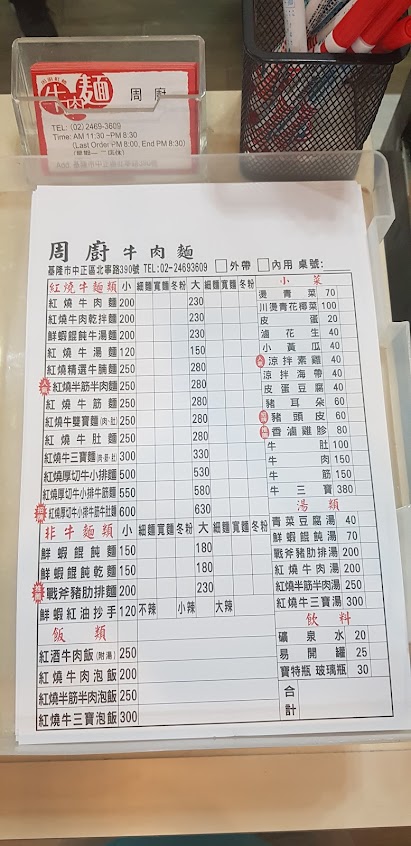 牛肉麵 周廚
TEL: (02) 2469-3609
Time: AM 11:30 ~PM 8:30
(Last Order PM 8:00, End PM 8:30)
Add: 基隆市中正區北寧路390號
周廚牛肉麵
基隆市中正區北寧路390號 TEL:02-24693609 □外帶 □內用 桌號:
紅燒牛麵類 小 細麵 寬麵 冬粉 大 細麵 寬麵 冬粉
紅燒牛肉麵 200 230
紅燒牛肉乾拌麵 200 230
鮮蝦餛飩牛湯麵 200 230
紅燒牛湯麵 120 150
紅燒精選牛腩麵 250 280
紅燒半筋半肉麵 250 280
紅燒牛筋麵 250 280
紅燒牛雙寶麵(肉、肚) 250 280
紅燒牛肚麵 250 280
紅燒牛三寶麵(肉、筋、肚) 300 330
紅燒厚切牛小排麵 500 530
紅燒厚切牛小排牛筋麵 550 580
紅燒厚切牛小排牛筋牛肚麵 600 630
非牛麵類 小 細麵 寬麵 冬粉 大 細麵 寬麵 冬粉
鮮蝦餛飩麵 150 180
鮮蝦餛飩乾麵 150 180
戰斧豬肋排麵 200 230
鮮蝦紅油抄手 120 不辣 小辣 大辣
飯類
紅酒牛肉飯(附湯) 250
紅燒牛肉泡飯 200
紅燒半筋半肉泡飯 250
紅燒牛三寶泡飯 300
小菜
燙青菜 70
川燙青花椰菜 100
皮蛋 20
滷花生 40
小黃瓜 40
涼拌素雞 40
涼拌海帶 40
皮蛋豆腐 40
豬耳朵 60
豬頭皮 60
香滷雞胗 80
牛肚 100
牛肉 150
牛筋 150
牛三寶 380
湯類
青菜豆腐湯 40
鮮蝦餛飩湯 70
戰斧豬肋排湯 200
紅燒牛肉湯 200
紅燒半筋半肉湯 250
紅燒牛三寶湯 300
飲料
礦泉水 20
易開罐 25
寶特瓶 玻璃瓶 30
合計